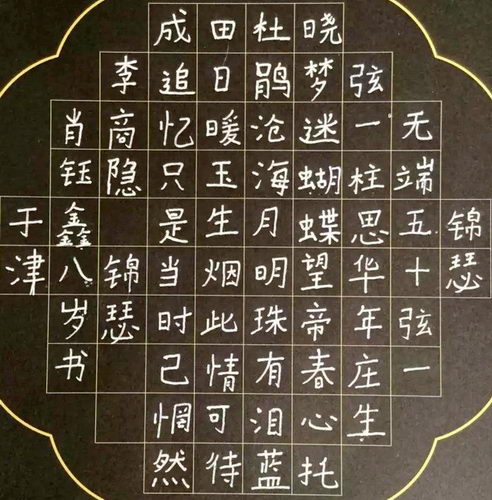 锦瑟
无端五十弦一
弦一柱思华年庄生
晓梦迷蝴蝶望帝春心托
杜鹃沧海月明珠有泪蓝
田日暖玉生烟此情可待
成追忆只是当时己惘然
李商隐锦瑟
肖钰鑫八岁书
于津